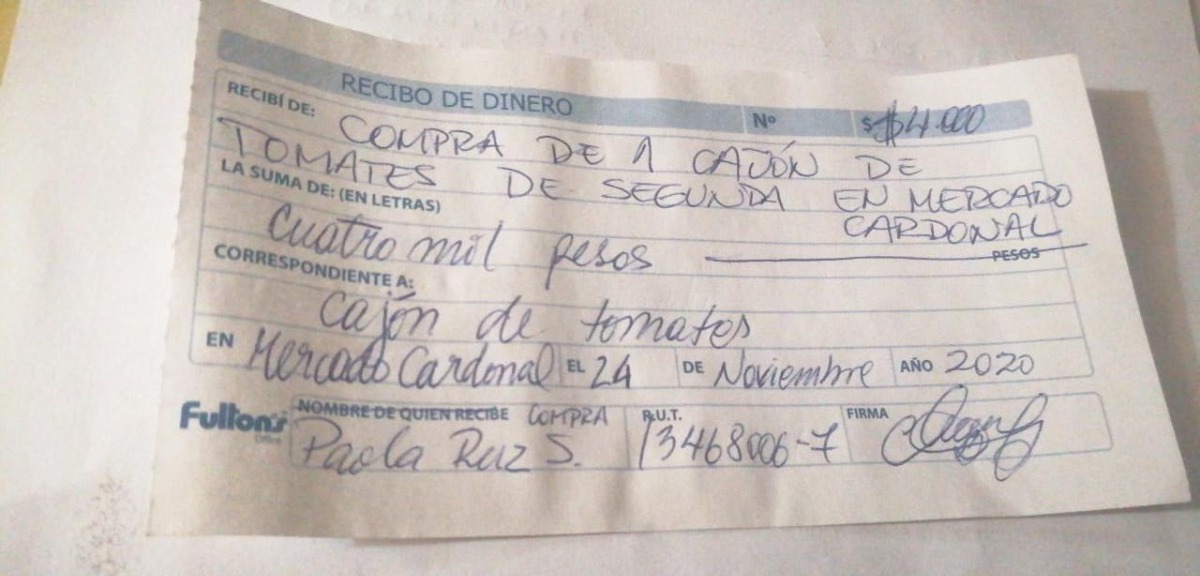 RECIBO DE DINERO Nº $ $4.000
RECIBÍ DE: COMPRA DE 1 CAJÓN DE
TOMATES DE SEGUNDA EN MERCADO
CARDONAL
LA SUMA DE: (EN LETRAS)
Cuatro mil pesos PESOS
CORRESPONDIENTE A:
Cajón de tomates
EN Mercado Cardonal EL 24 DE Noviembre AÑO 2020
Fultons Office
NOMBRE DE QUIEN RECIBE COMPRA R.U.T. FIRMA
Paola Ruz S. 13468006-7